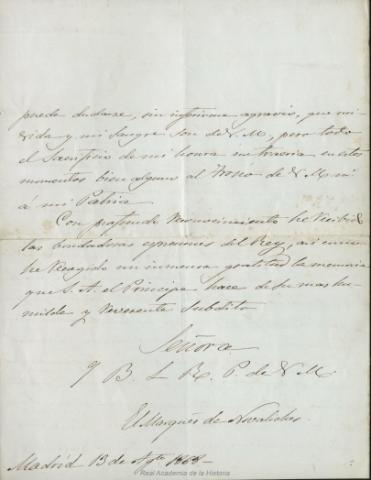 pueda dudarse, sin inferirme agravio, que mi
vida y mi sangre son de V. M., pero todo
el sacrificio de mi honra no traeria en estos
momentos bien alguno al Trono de V. M. ni
á mi Patria.
Con profundo reconocimiento he recibido
las bondadosas espresiones del Rey, asi como
he recogido con inmensa gratitud la memoria
que S. A. el Principe hace de su mas hu-
milde y reverente subdito.
Señora
q B. L. R. P. de V. M.
El Marqués de Novaliches
Madrid 13 de Agto 1868-
© Real Academia de la Historia